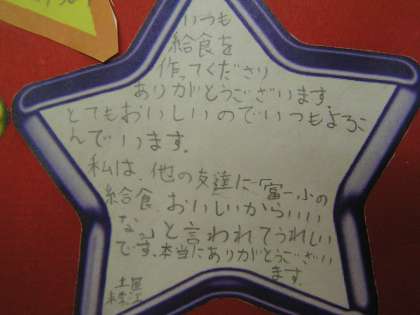 いつも
給食を
作ってくださり
ありがとうございます。
とてもおいしいのでいつもよろこ
んでいます。
私は、他の友達に「富一小の
給食おいしいからいいい
な。」と言われてうれしい
です。本当にありがとうござい
ます。